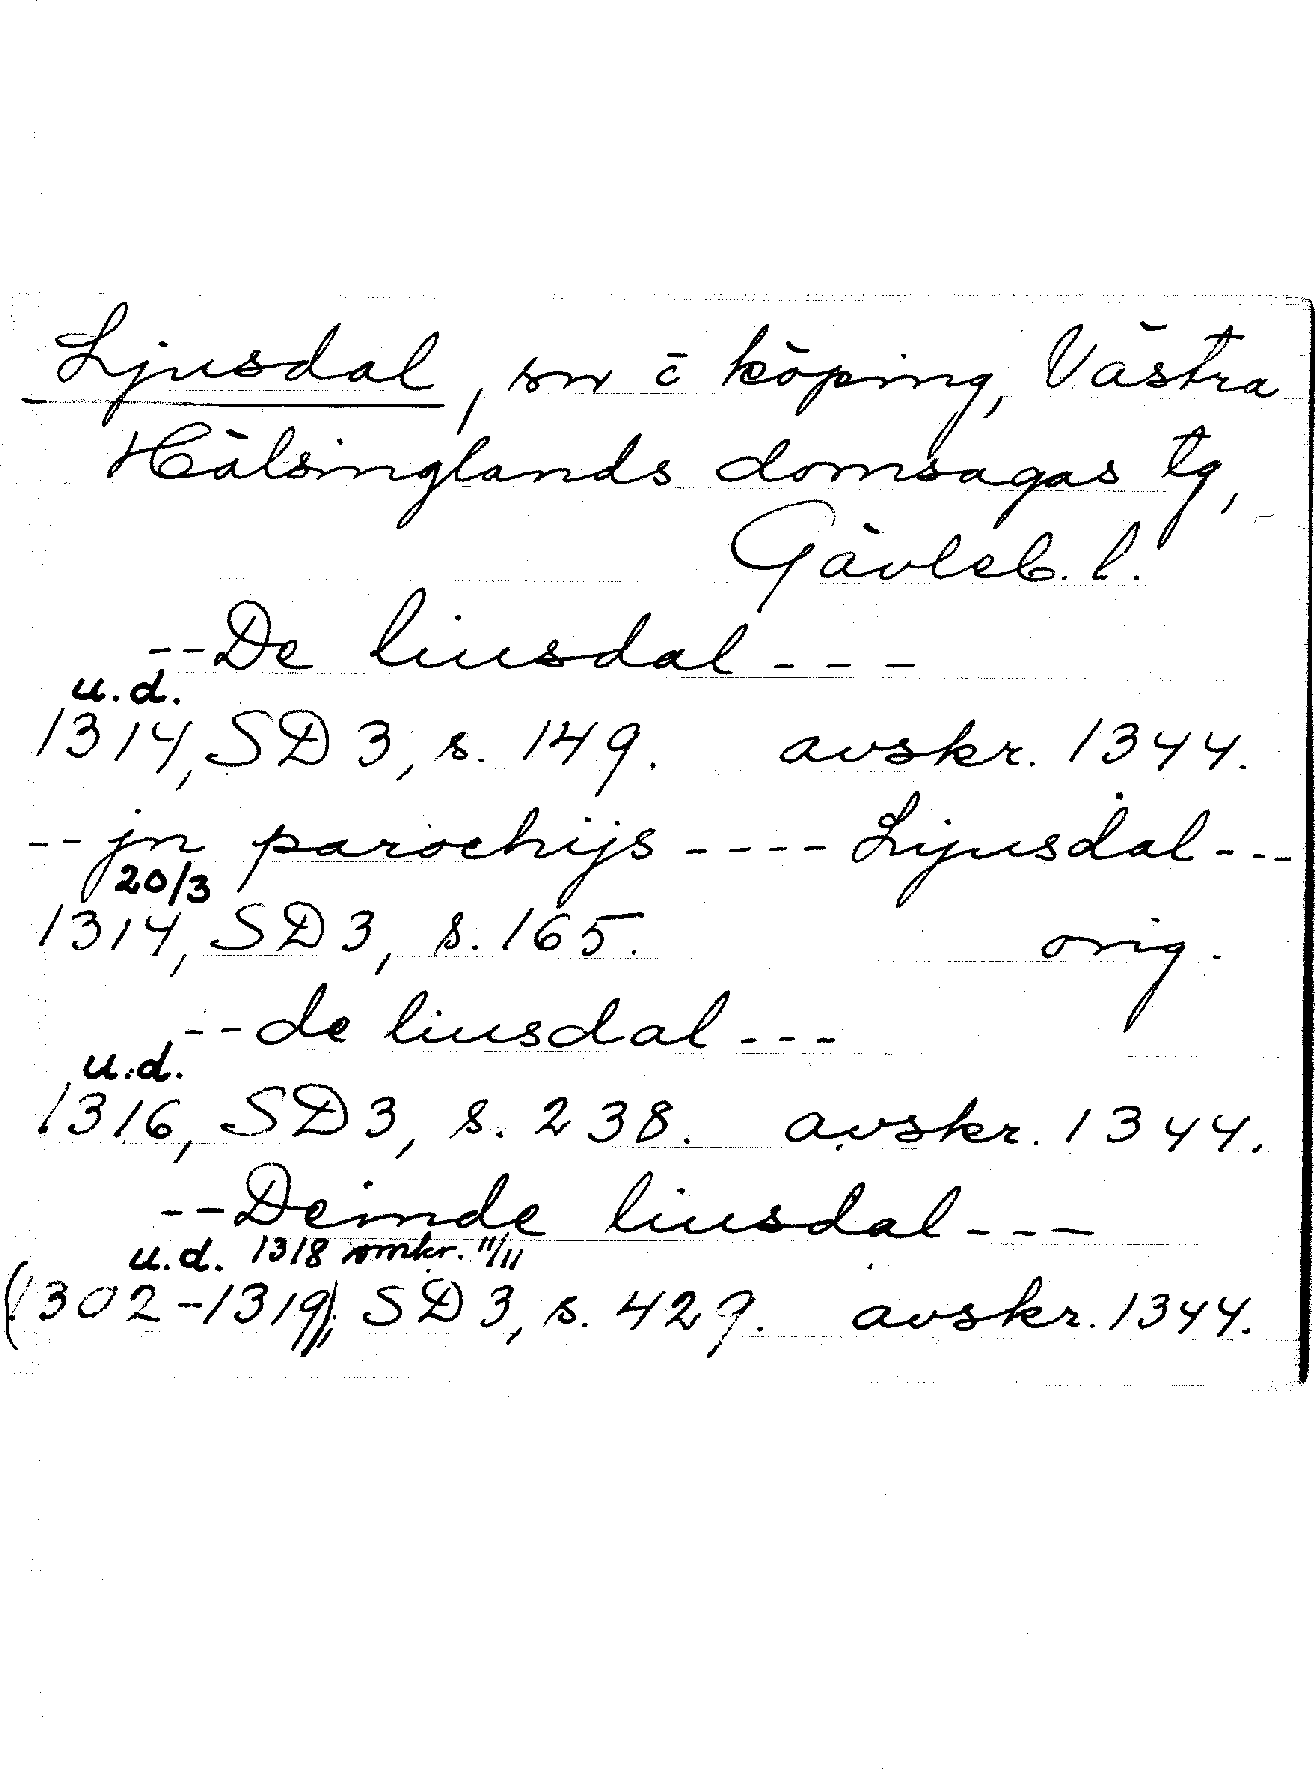 Ljusdal, sn o köping, Västra
Hälsinglands domsagas tg,
Gävleb. l.
--De liusdal---
u.d.
1314, SD 3, s. 149. avskr. 1344.
--jn parochijs---- Lijusdal---
20/3
1314, SD 3, s. 165. orig.
--de liusdal---
u.d.
1316, SD 3, s. 238. avskr. 1344.
--Deinde liusdal---
u.d. 1318 omkr. 11/11
(1302-1319), SD 3, s. 429. avskr. 1344.